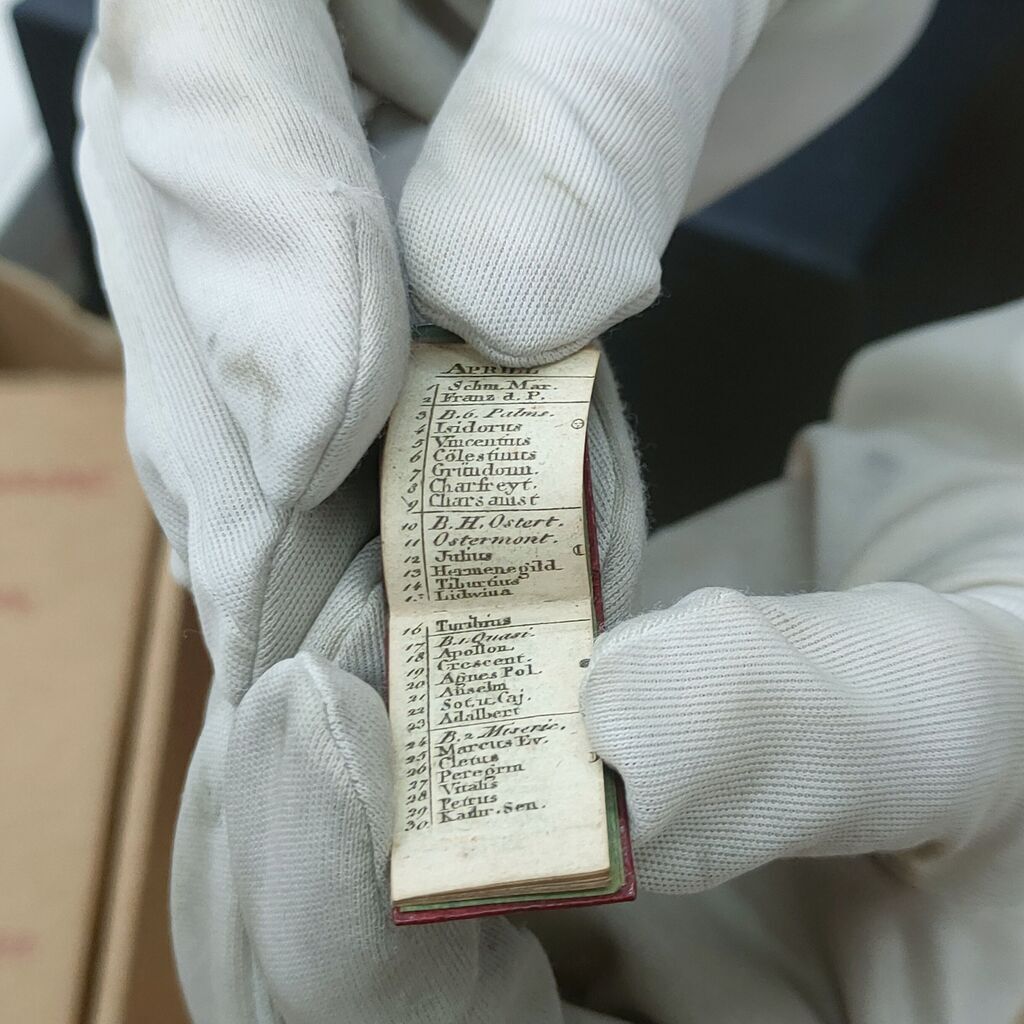 APRILL
1 Schm. Mar.
2 Franz d. P.
3 B. 6. Palms.
4 Isidorus
5 Vincentius
6 Cölestinus
7 Gründonn.
8 Charfreyt.
9 Charsamst
10 B. H. Ostert.
11 Ostermont.
12 Julius
13 Hermenegild
14 Tiburtius
15 Lidwina
16 Turibius
17 B. 1. Quasi.
18 Apollon.
19 Crescent.
20 Agnes Pol.
21 Anselm
22 Sot. u. Caj.
23 Adalbert
24 B. 2 Miseric.
25 Marcus Ev.
26 Cletus
27 Peregrin
28 Vitalis
29 Petrus
30 Kathr. Sen.